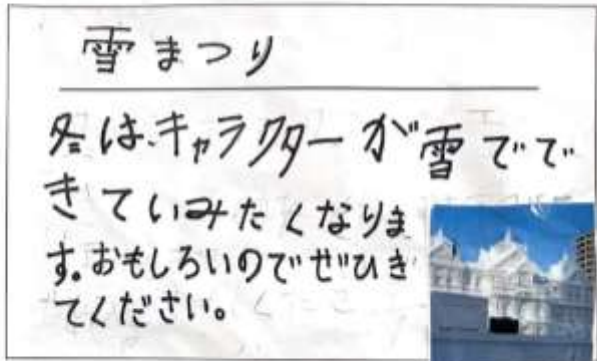 雪まつり
冬は、キャラクターが雪でで
きていみたくなりま
す。おもしろいのでぜひき
てください。